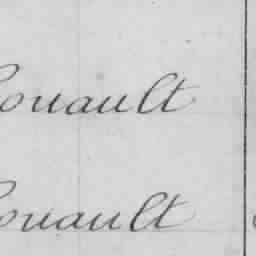 Couault
Couault